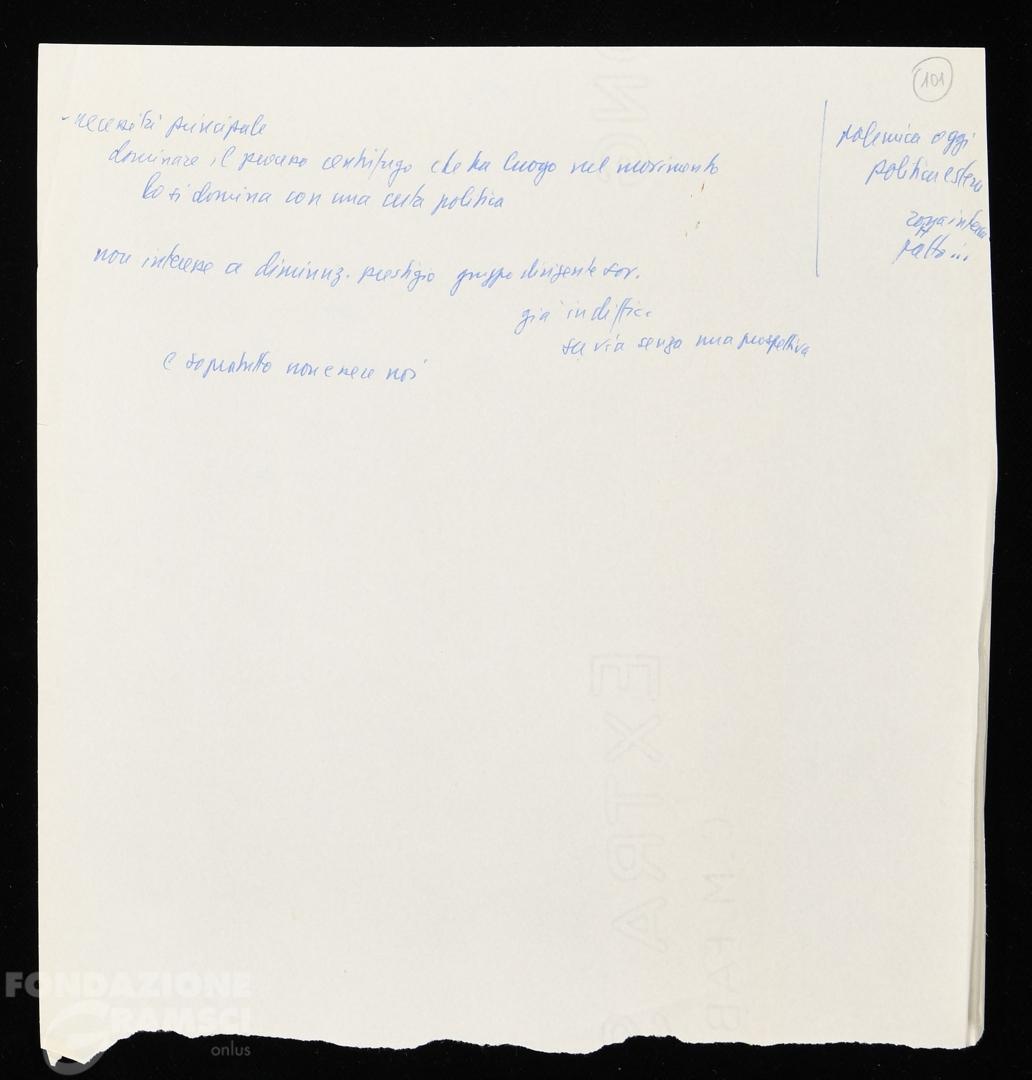 101
- necessità principale
dominare il processo centrifugo che ha luogo nel movimento
lo si domina con una certa politica
non interesse a diminuz. prestigio gruppo dirigente sov.
già in diffic.
su via senza una prospettiva
e sopratutto non essere noi
polemica oggi
politica estera
interna
patto...
EXTRA
FONDAZIONE
GRAMSCI
onlus